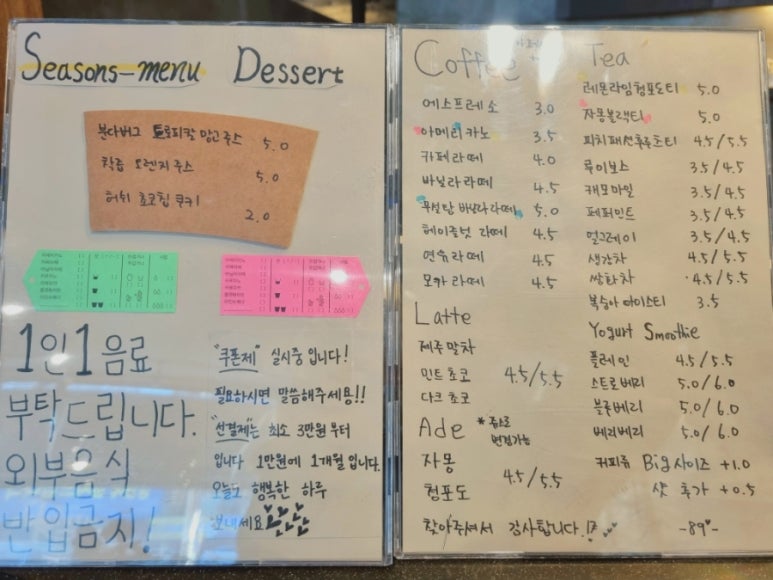 Seasons-menu Dessert
분다버그 트로피칼 망고주스 5.0
착즙 오렌지 주스 5.0
허쉬 초코칩 쿠키 2.0
1인 1음료
부탁드립니다.
외부음식
반입금지!
"쿠폰제" 실시중 입니다!
필요하시면 말씀해주세용!!
"선결제"는 최소 3만원부터
입니다 1만원에 1개월입니다.
오늘도 행복한 하루
보내세요
Coffee
에스프레소 3.0
아메리카노 3.5
카페라떼 4.0
바닐라라떼 4.5
무설탕 바닐라라떼 5.0
헤이즐넛 라떼 4.5
연유라떼 4.5
모카라떼 4.5
Latte
제주말차
민트초코 4.5/5.5
다크초코
Ade *쥬스로
변경가능
자몽
청포도 4.5/5.5
찾아주셔서 감사합니다.!
Tea
레몬라임청포도티 5.0
자몽블랙티 5.0
피치패션후르츠티 4.5/5.5
루이보스 3.5/4.5
캐모마일 3.5/4.5
페퍼민트 3.5/4.5
얼그레이 3.5/4.5
생강차 4.5/5.5
쌍화차 4.5/5.5
복숭아 아이스티 3.5
Yogurt Smoothie
플레인 4.5/5.5
스트로베리 5.0/6.0
블루베리 5.0/6.0
베리베리 5.0/6.0
커피류 Big사이즈 +1.0
샷 추가 +0.5
-89-